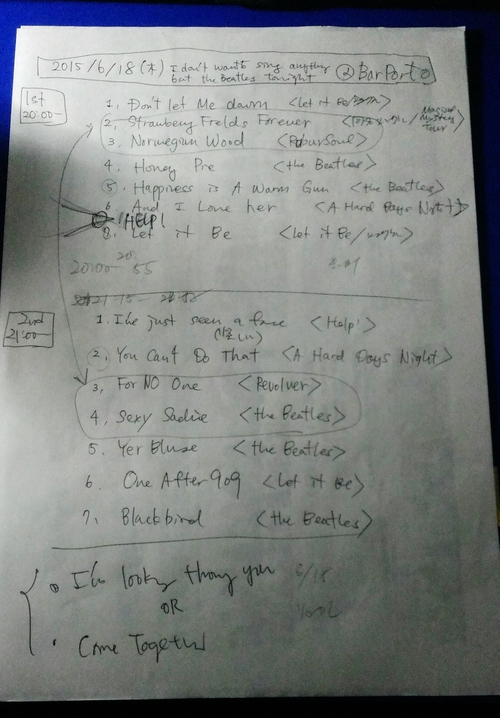 2015/6/18(木) I don't want sing anything
but the Beatles tonight @BarPorto
1st
20:00-
1. Don't Let Me down <Let it Be/
2. Strawberry Fields Forever < / Magical Mystery Tour>
3. Norwegian Wood <RubberSoul>
4. Honey Pie <the Beatles>
5. Happiness is A Warm Gun <the Beatles>
6. And I Love her <A Hard Days Night>
HELP!
8. Let it Be <Let it Be/
20:00- 20: 55
2nd
21:00-
1. I've just seen a face <Help!>
2. You Can't Do That <A Hard Days Night>
3. For NO One <Revolver>
4. Sexy Sadie <the Beatles>
5. Yer Bluse <the Beatles>
6. One After 909 <Let it Be>
7. Blackbird <the Beatles>
I'm looking through you 6/18
OR
Come Together